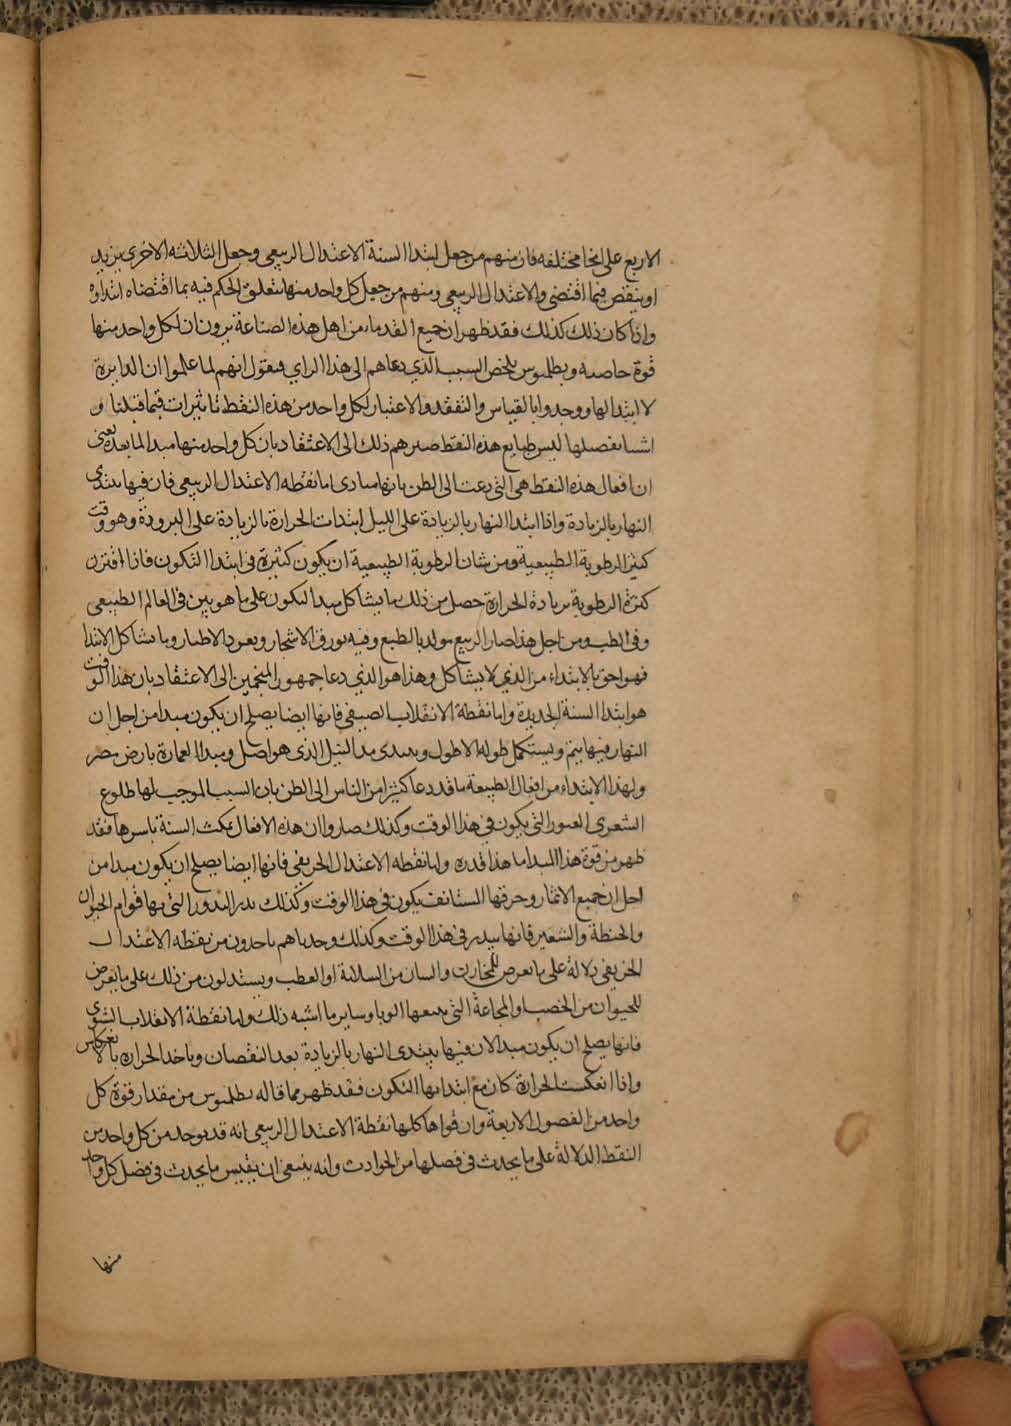 الاربع على انحا مختلفه فان منهم من جعل ابتدا السنة الاعتدال الربيعي وجعل الثلاثه الاخرى يزيد
او ينقص فيما اقتضى والاعتدال الربيعي ومنهم من جعل كل واحد منها يتعلق الحكم فيه بما اقتضاه ابتداوه
واذا كان ذلك كذلك فقد ظهر ان جميع القدماء من اهل هذه الصناعة يرون ان لكل واحد منها
قوة خاصه وبطلميوس يلخص السبب الذي دعاهم الى هذا الراي فيقول انهم لما علموا ان الدايرة
لا ابتدا لها ووجدوا بالقياس والتفقد والاعتبار لكل واحد من هذه النقط تاثيرات فيما قبلنا و
اشيا نفصلها ليس طبايع هذه النقط صيرهم ذلك الى الاعتقاد بان كل واحد منها مبدا لما بعده يعني
ان افعال هذه النقط هي التي دعت الى الظن بانها مبادى اما نقطه الاعتدال الربيعي فان فيها يبتدى
النهار بالزيادة واذا ابتدا النهار بالزيادة على الليل ابتدات الحرارة بالزيادة على البرودة وهو وقت
كثير الرطوبة الطبيعية ومن شان الرطوبة الطبيعية ان يكون كثيرة في ابتدا التكون فاذا اقترن
كثرة الرطوبة بزيادة الحرارة حصل من ذلك ما يشاكل مبدا التكون على ما هو بين في العالم الطبيعى
وفى الطب ومن اجل هذا صار الربيع مولد بالطبع وفيه تورق الاشجار ويعود الاطيار وما يشاكل الابتدا
فهو احق بالابتداء من الذي لا يشاكل وهذا هو الذي دعا جمهور المنجمين الى الاعتقاد بان هذا الوقت
هو ابتدا السنة الجديدة واما نقطة الانقلاب الصيفي فانها ايضا يصلح ان يكون مبدا من اجل ان
النهار فيها يتم ويستكمل طوله الاطول ويبتدى مد النيل الذى هو اصل ومبدا العمارة بارض مصر
ولهذا الابتداء من افعال الطبيعة ما قد دعا كثيرا من الناس الى الظن بان السبب الموجب لها طلوع
الشعرى العبور التي يكون في هذا الوقت وكذلك صاروا ان هذه الافعال يمكث السنة باسرها فقد
ظهر من قوة هذا المبدا ما هذا قدره واما نقطه الاعتدال الخريفي فانها ايضا يصلح ان يكون مبدا من
اجل ان جميع الاثمار وحرفها المستانف يكون في هذا الوقت وكذلك بدر البدور التي بها قوام الحيوان
والحنطة والشعير فانها يبدر في هذا الوقت وكذلك وجدناهم ياخذون من نقطه الاعتدال
الخريفي دلالة على ما يعرض للمخازن والسان من السلامة او العطب ويستدلون من ذلك على ما يعرض
للحيوان من الخصب او المجاعة التي يتبعها الوبا وساير ما اشبه ذلك واما نقطة الانقلاب الشتوي
فانها يصلح ان يكون مبدا لان فيها يبتدى النهار بالزيادة بعد النقصان وياخذ الحرارة بالانعكاس
واذا انعكست الحرارة كان مع ابتدائها التكون فقد ظهر مما قاله بطلميوس من مقدار قوة كل
واحد من الفصول الاربعة وان قواها كلها نقطة الاعتدال الربيعي انه قد يوجد من كل واحد من
النقط الدلالة على ما يحدث في فصلها من الحوادث وانه ينبغى ان يقيس ما يحدث في فصل كل واحد
منها